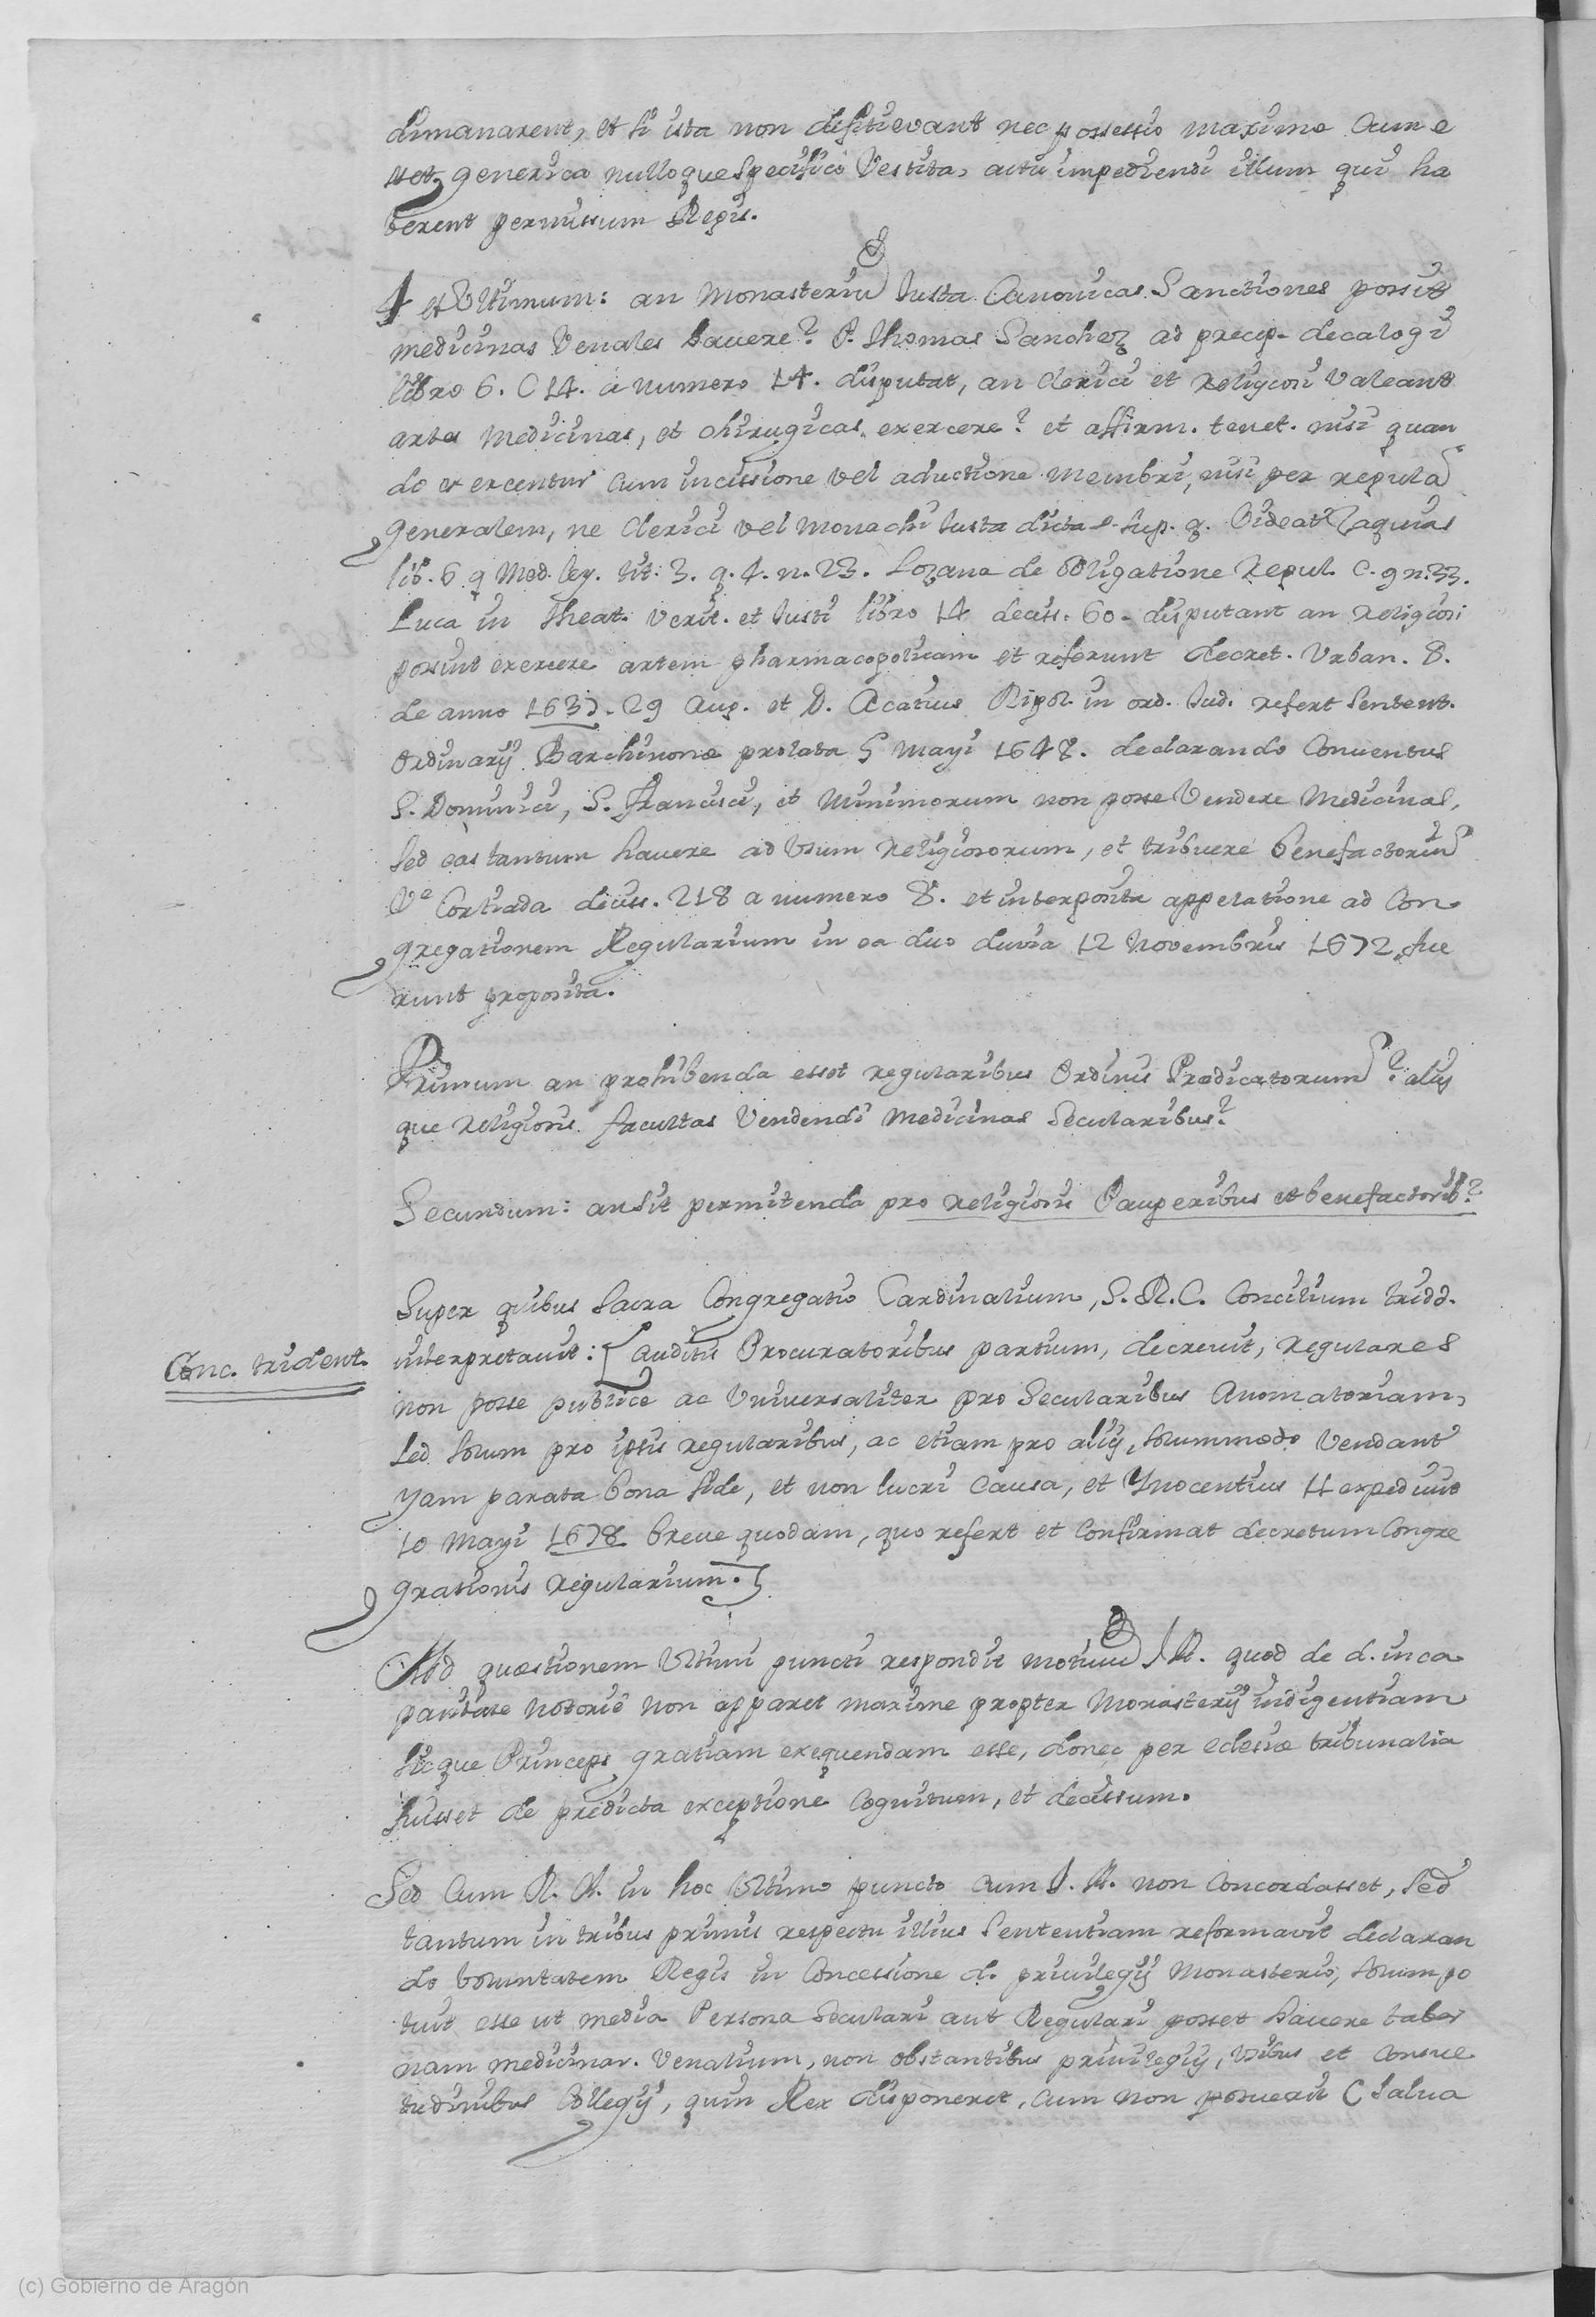 dimanarent, et si ista non desitievant nec possessio maxime Cum e
sset generica nulloque specifico Vestita, actu impediendi illum qui ha
berent permissum Regis.
4 et Vltimum: an Monasteriu Iusta Canonicas Sanctiones possit
medicinas Venales hauere? P. Thomas Sanchez ad precep. decalogi
libro 6. C 14. a numero 14. disputat, an clerici et Religiosi Valeant
artes Medicinas, et chirugicas exercere? et affirm. tenet. nisi quan
do exercentur Cum incissione vel aductione membri, nisi per regula
generalem, ne Clerici vel Monachi Iusta dicta sup. q. Videat Zaquias
lib. 6 q Med. leg. tit. 3. q. 4. n. 23. Lozana de Obligatione Regul. C. 9 n. 33.
Luca in theat. Verit. et Iusti libro 14 deciss. 60. disputant an Religiosi
possint exercere artem pharmacopolicam et referunt decret. Vrban. 8.
de anno 1637. 29 Aug. et D. Acatius Ripol. in ord. Iud. refert Sentent.
Ordinarij Barchinonæ prolata 5 Mayi 1648. declarando Conventus
S. Dominici, S. Francisci, et Minimorum non posse Vendere Medicinas,
sed eas tantum hauere ad Vsum Religiosorum, et tribuere benefactoriu
Ve Cortiada deciss. 218 a numero 8. et interposita appelatione ad Con
gregationem Regularium in ea duo duvia 12 Novembris 1672 fue
runt proposita.
Primum an prohibenda esset regularibus Ordinis Prædicatorum? alijs
que Religiosis facultas Vendendi Medicinas Secularibus?
Secundum: an sit permitenda pro Religiosis Pauperibus et benefactorib?
Super quibus Sacra Congregatio Cardinalium, S. R. C. Concilium tridd.
Conc. trident.
interpretauit: [auditis Procuratoribus partium, decreuit, regulares
non posse publice ac Vniversaliter pro Secularibus Aromatoriam,
sed solum pro ipsis regularibus, ac etiam pro alijs, solummodo Vendant
yam parata bona fide, et non lucri Causa, et Ynocentius 11 expedivit
10 Mayi 1678 breue quodam, quo refert et Confirmat decretum Congre
grationis regularium.]
Ad quæstionem Vltimi puncti respondit motivu I. R. quod de d. inca
pacitate Notorie non apparet maxime propter Monasterij indigentiam
sicque Princeps gratiam exequendam esse, donec per eclesiæ tribunalia
fuisset de predicta exceptione Cognitum, et decissum.
Sed Cum R. A. in hoc Vltimo puncto Cum I. R. non Concordasset, Sed
tantum in tribus primis respectu illius Sententiam reformavit declaran
do Voluntatem Regis in Concessione d. privilegij Monasterio, solum po
tuit esse ut media Persona Seculari aut Regulari posset hauere taber
nam medicinar. Venalium, non obstantibus privilegijs, Vsibus et Consue
tudinibus Collegij, quin Rex disponeret, Cum non posuerit C salva